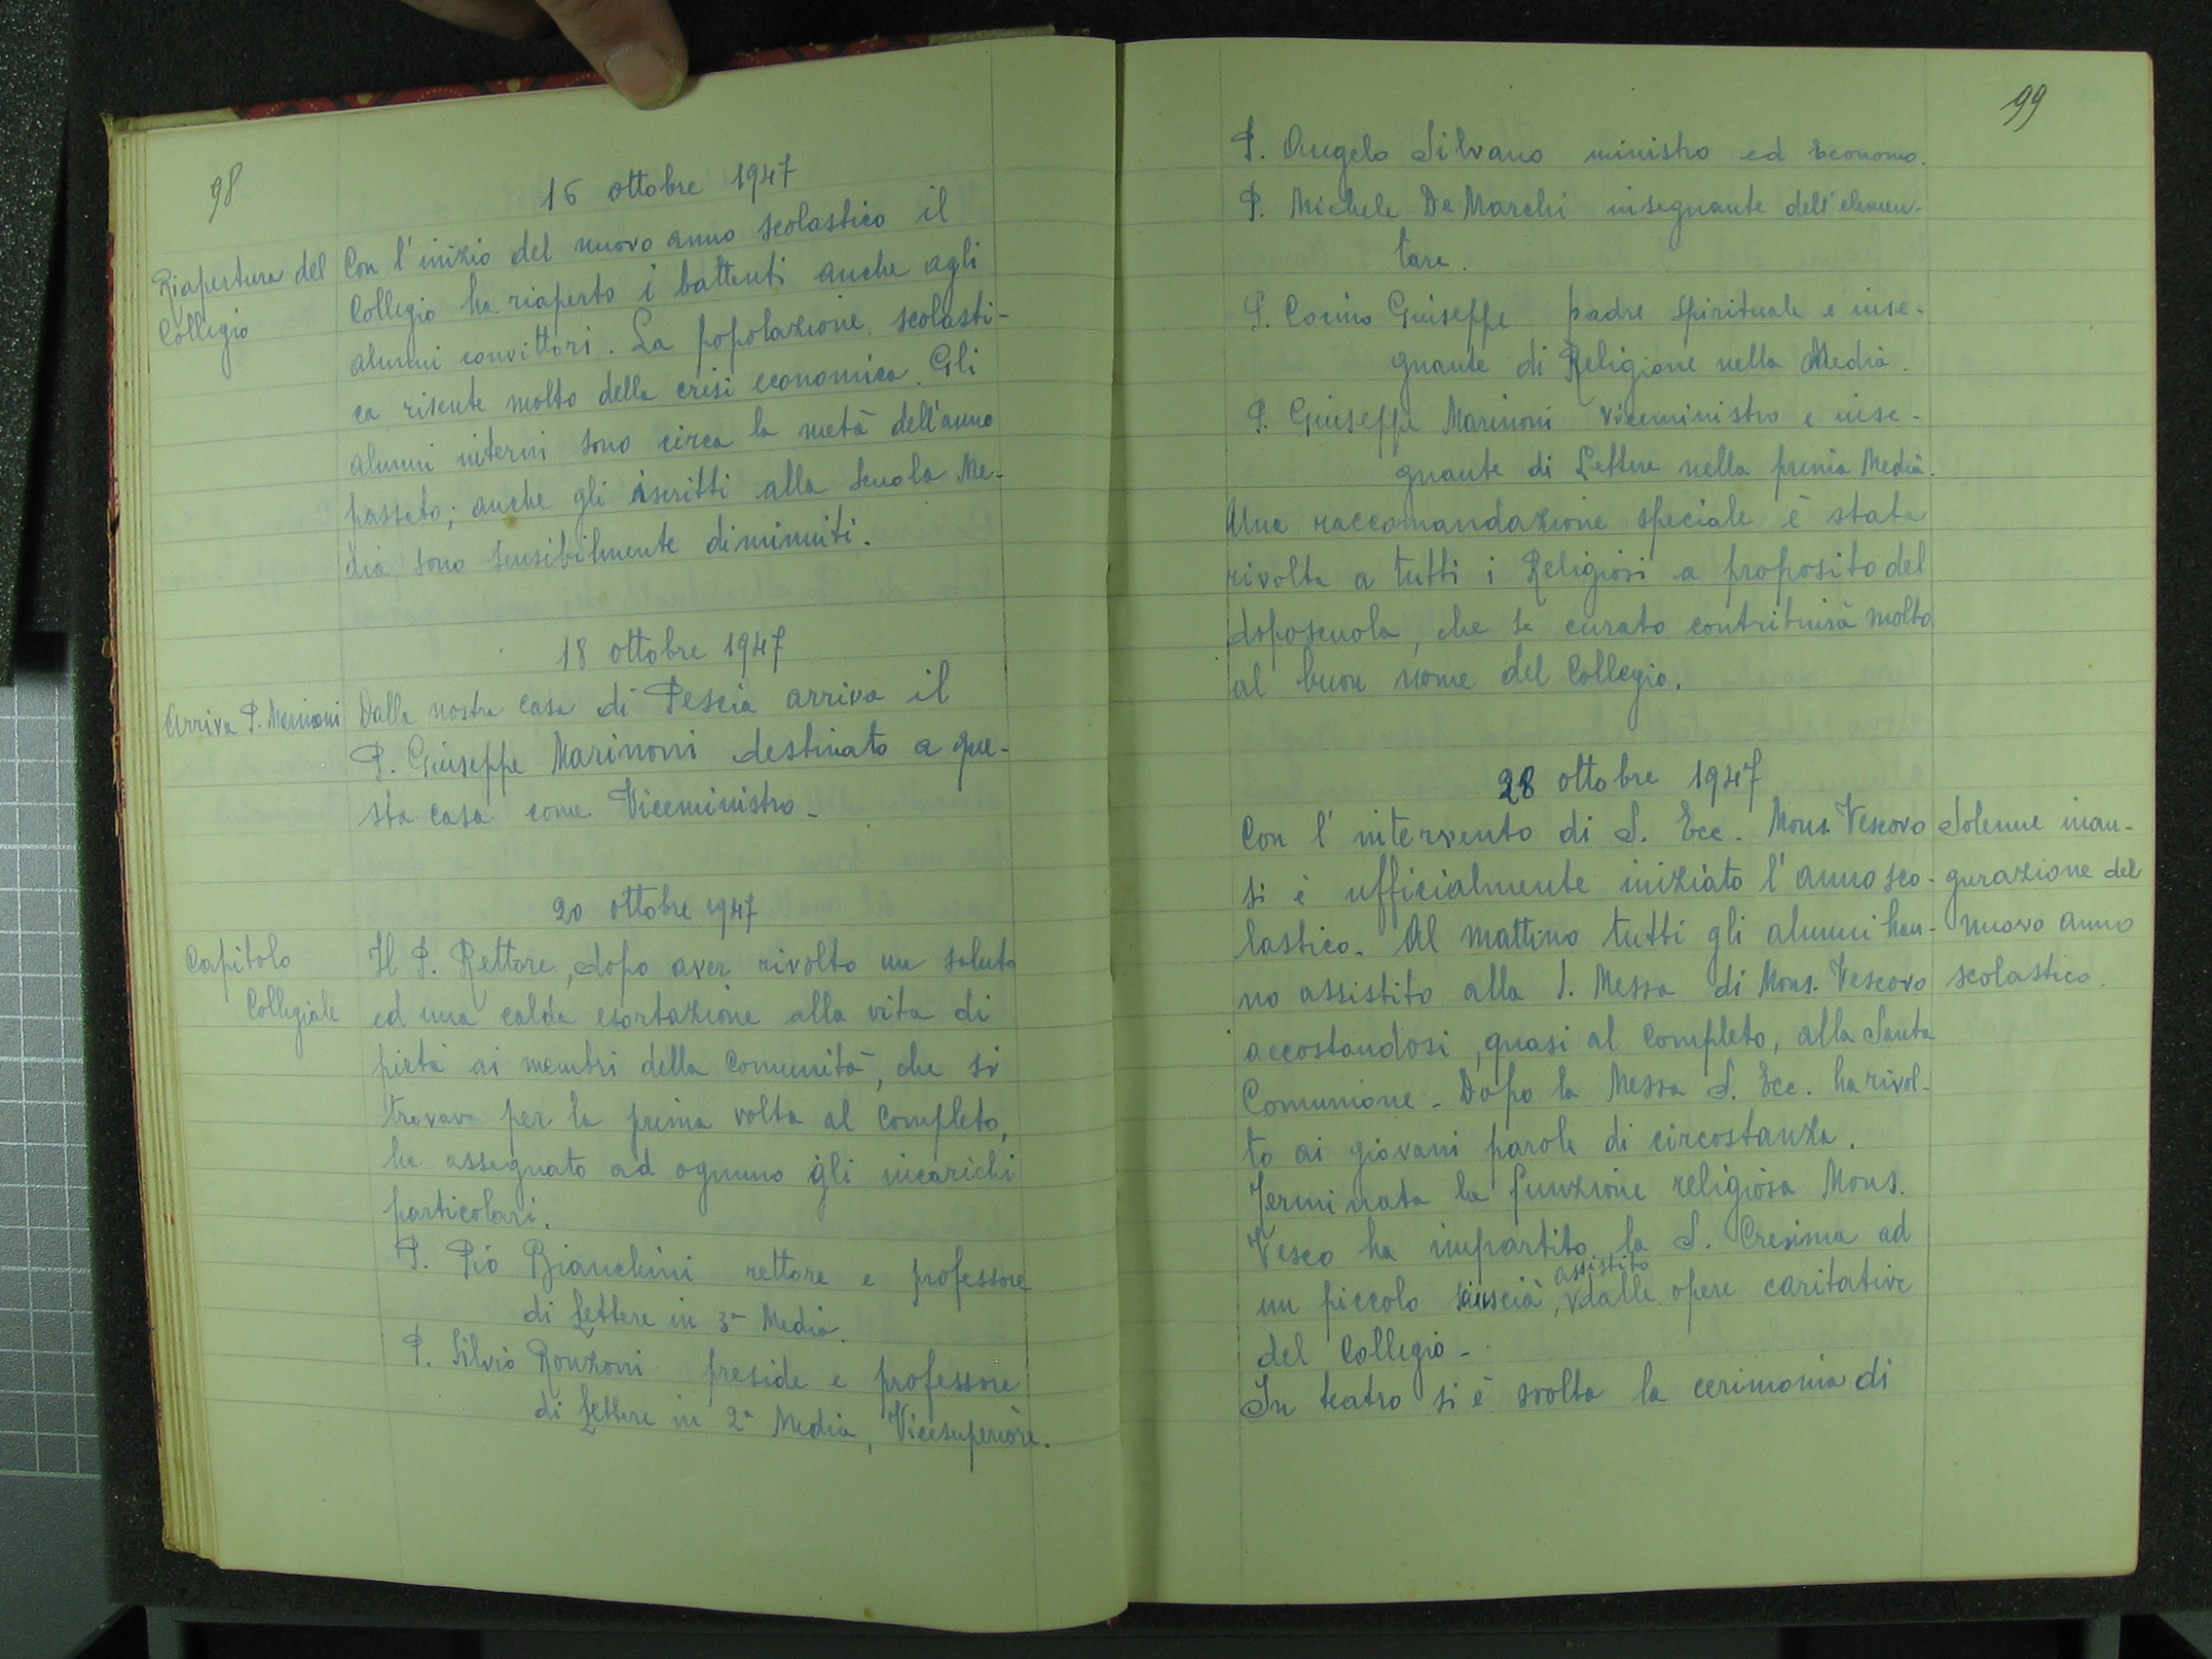 98
16 ottobre 1947
Riapertura del
Collegio
Con l'inizio del nuovo anno scolastico il
Collegio ha riaperto i battenti anche agli
alunni convittori. La popolazione scolasti-
ca risente molto della crisi economica. Gli
alunni interni sono circa la metà dell'anno
passato; anche gli iscritti alla Scuola Me-
dia sono sensibilmente diminuiti.
18 ottobre 1947
Arriva P. Marinoni
Dalla nostra casa di Pescia arriva il
P. Giuseppe Marinoni destinato a que-
sta casa come Viceministro.
20 ottobre 1947
Capitolo
Collegiale
Il P. Rettore, dopo aver rivolto un saluto
ed una calda esortazione alla vita di
pietà ai membri della Comunità, che si
trovava per la prima volta al completo,
ha assegnato ad ognuno gli incarichi
particolari.
P. Pio Bianchini rettore e professore
di Lettere in 3ª Media.
P. Silvio Ronzoni preside e professore
di Lettere in 2ª Media, Vicesuperiore.
99
P. Angelo Silvano ministro ed Economo.
P. Michele De Marchi insegnante dell'elemen-
tare.
P. Cocino Giuseppe padre Spirituale e inse-
gnante di Religione nella Media.
P. Giuseppe Marinoni Viceministro e inse-
gnante di Lettere nella prima Media.
Una raccomandazione speciale è stata
rivolta a tutti i Religiosi a proposito del
doposcuola, che se curato contribuirà molto
al buon nome del Collegio.
28 ottobre 1947
Con l'intervento di S. Ecc. Mons. Vescovo
si è ufficialmente iniziato l'anno sco-
lastico. Al mattino tutti gli alunni han-
no assistito alla S. Messa di Mons. Vescovo
accostandosi, quasi al completo, alla Santa
Comunione. Dopo la Messa S. Ecc. ha rivol-
to ai giovani parole di circostanza.
Terminata la funzione religiosa Mons.
Vesco ha impartito la S. Cresima ad
un piccolo sciuscià, assistito dalle opere caritative
del Collegio.
In teatro si è svolta la cerimonia di
Solenne inau-
gurazione del
nuovo anno
scolastico.